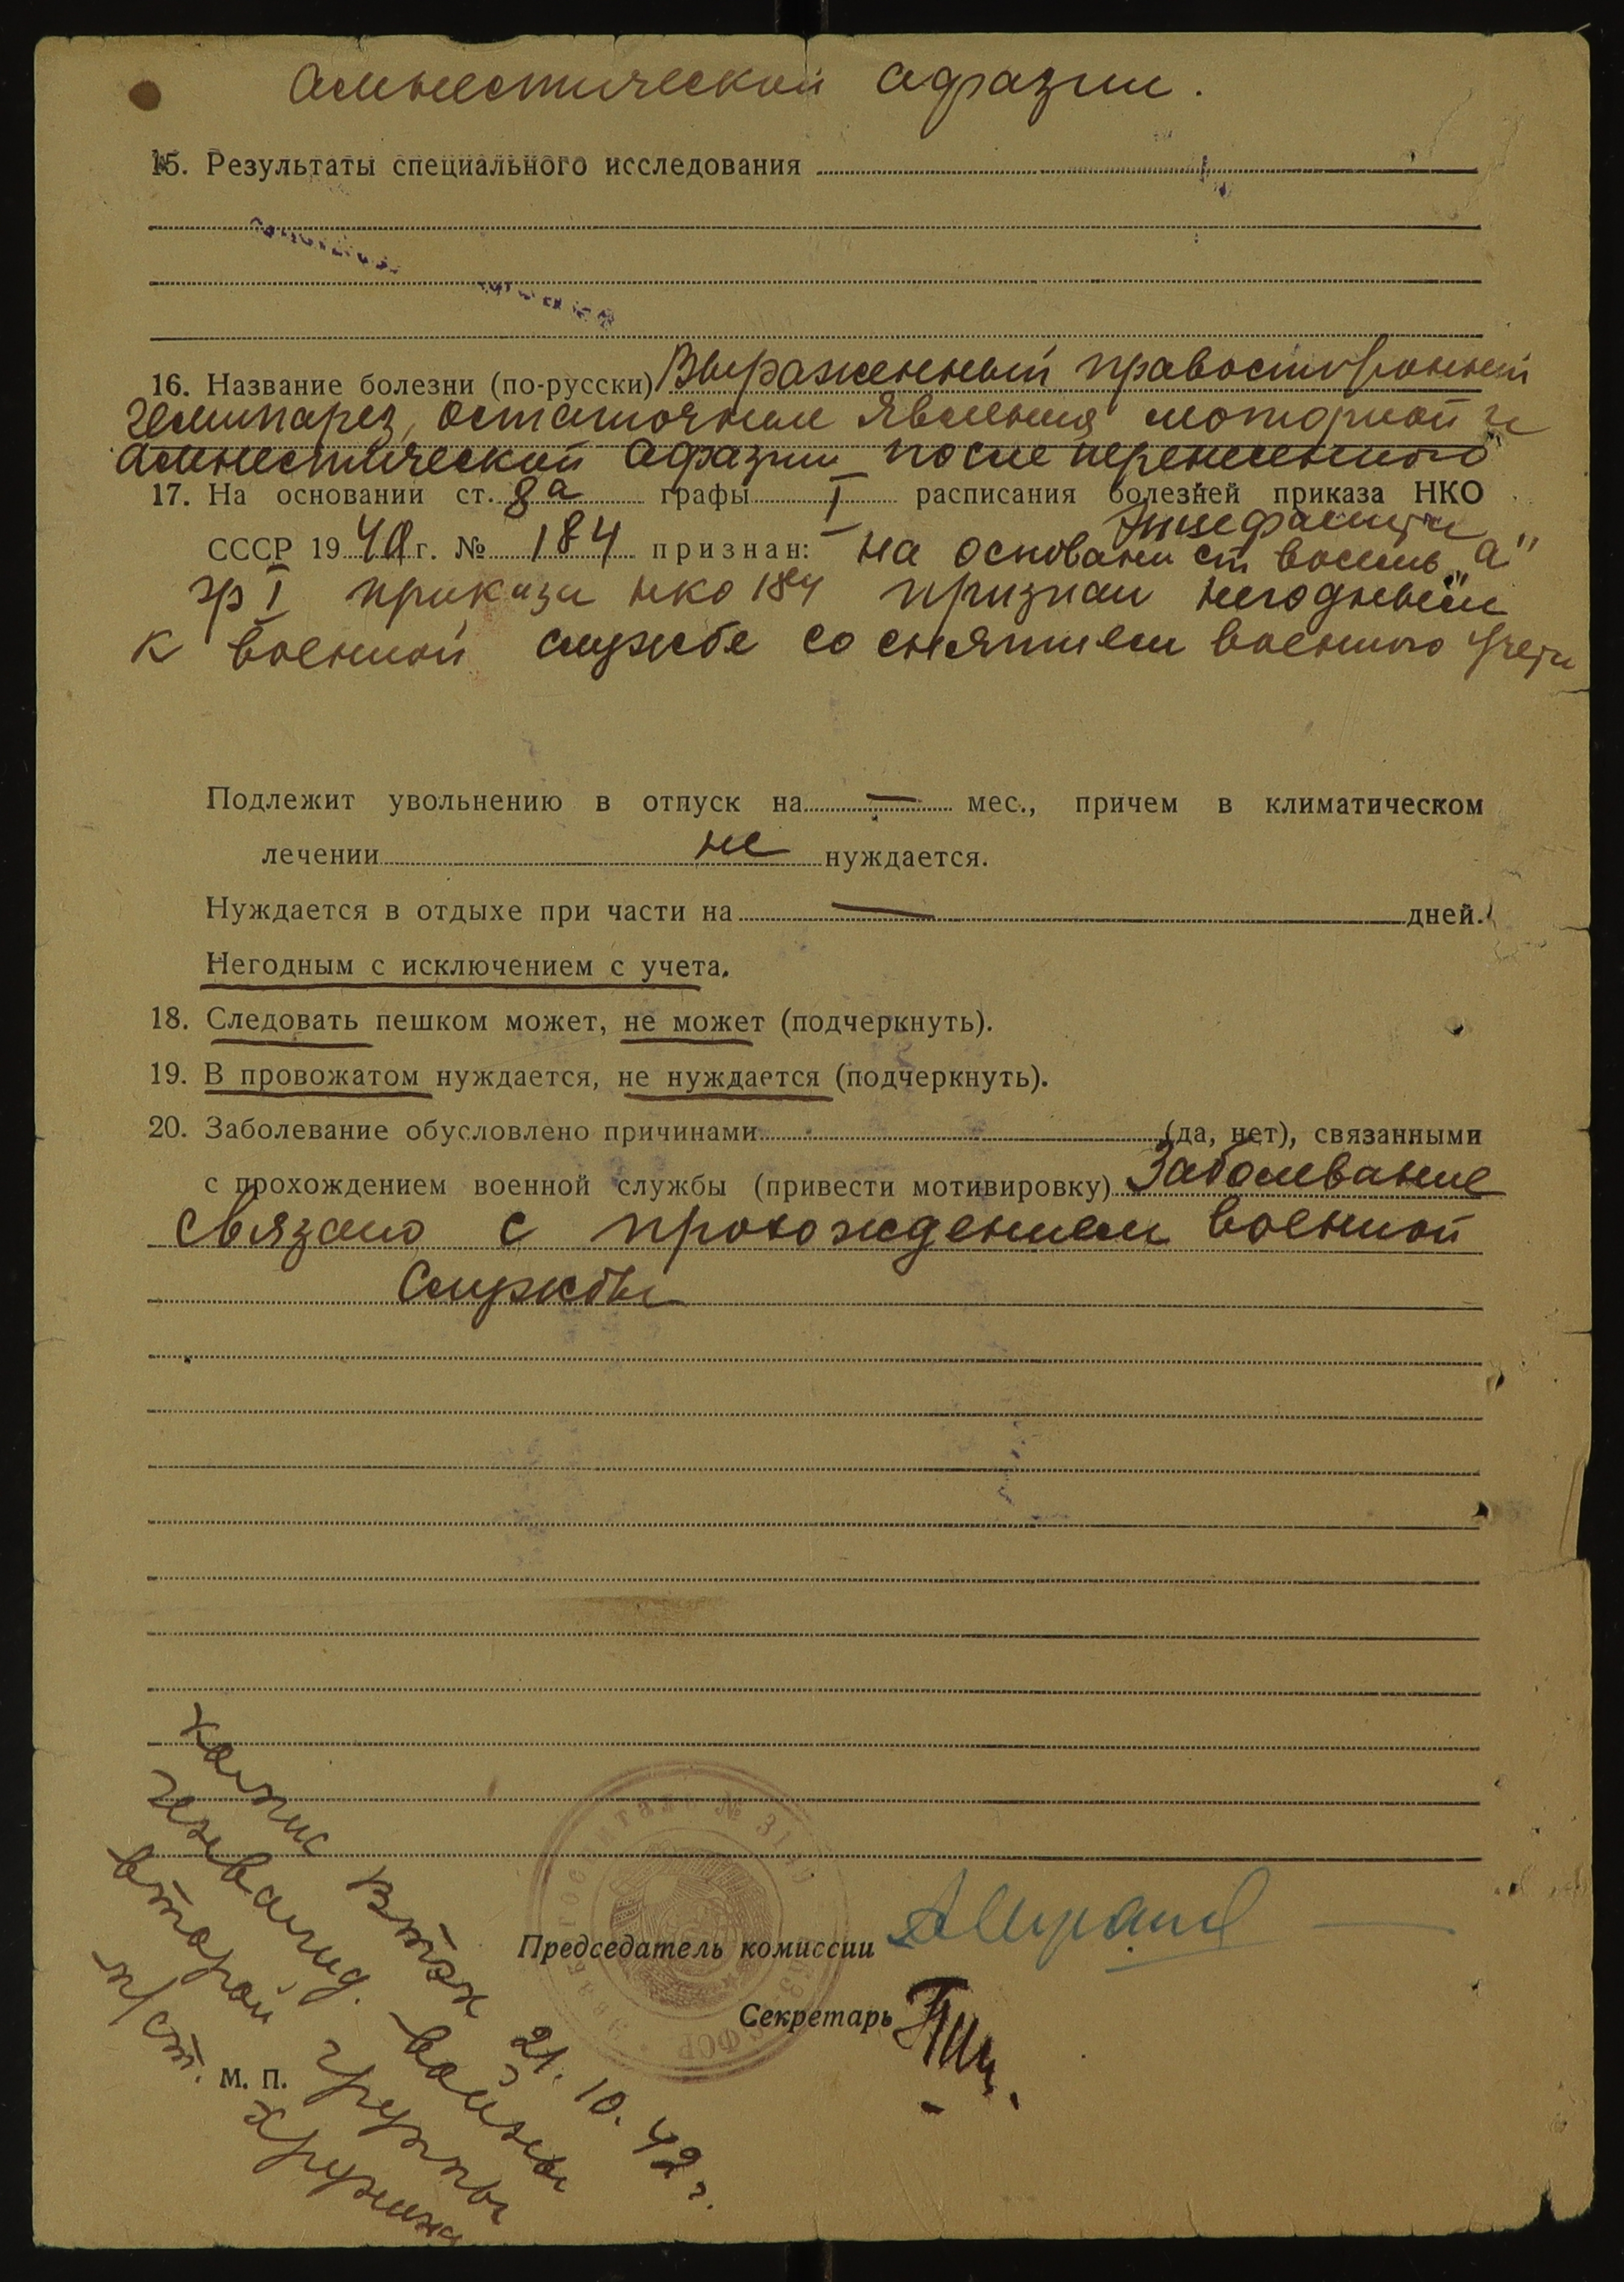 амнестической афазии.
15. Результаты специального исследования
16. Название болезни (по-русски) Выраженный правосторонний
гемипарез, остаточные явления моторной и
амнестической афазии после перенесенного
17. На основании ст. 8а графы I расписания болезней приказа НКО
энцефалита
СССР 1940 г. № 184 признан: на основани ст восемь „а"
гр I приказа нко 184 признан негодным
к военной службе со снятием военного учета
Подлежит увольнению в отпуск на — мес., причем в климатическом
лечении не нуждается.
Нуждается в отдыхе при части на — дней.
Негодным с исключением с учета.
18. Следовать пешком может, не может (подчеркнуть).
19. В провожатом нуждается, не нуждается (подчеркнуть).
20. Заболевание обусловлено причинами (да, нет), связанными
с прохождением военной службы (привести мотивировку) Заболевание
связано с прохождением военной
службы
Председатель комиссии
Секретарь
М. П.
втэк 21.10.42 г.
инвалид. войны
второй группы